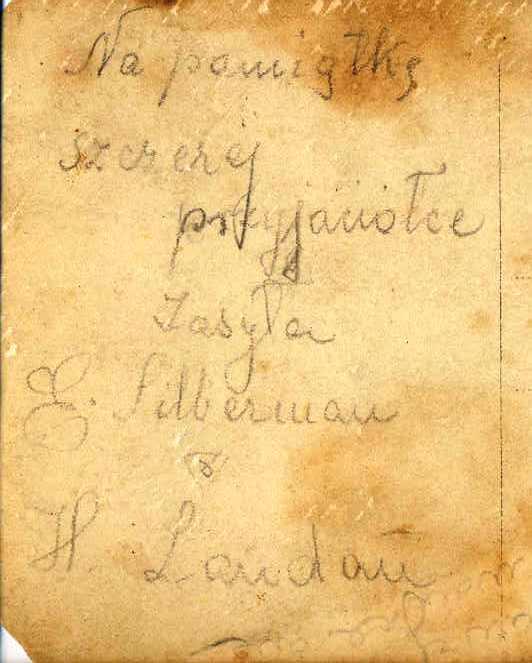 Na pamiątkę
szczerej
przyjaciółce
zasyła
E. Silberman
H. Landau